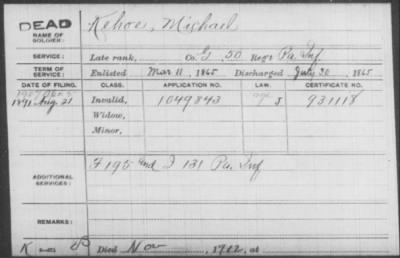 DEAD
NAME OF SOLDIER:
Kehoe, Michael
SERVICE:
Late rank, Co. G, 50 Reg't Pa. Inf.
TERM OF SERVICE:
Enlisted Mar 11, 1865 Discharged July 30, 1865
DATE OF FILING. CLASS. APPLICATION NO. LAW. CERTIFICATE NO.
1891 Aug. 21 Invalid, 1049843 J 931118
Widow,
Minor,
ADDITIONAL SERVICES:
F 195 and I 131 Pa. Inf
REMARKS:
K Died Nov , 1912, at